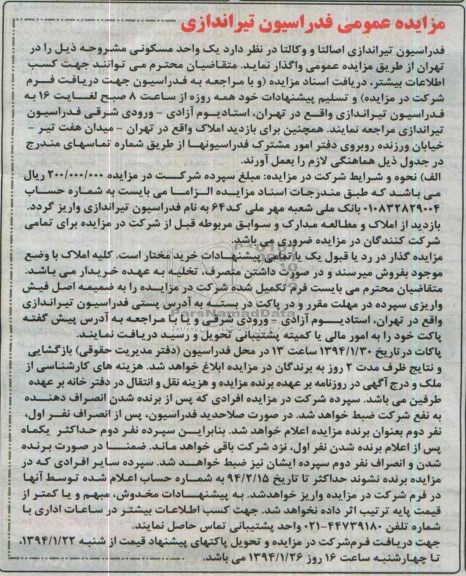 مزایده عمومی فدراسیون تیراندازی
فدراسیون تیراندازی اصالتا و وکالتا در نظر دارد یک واحد مسکونی مشروحه ذیل را در
تهران از طریق مزایده عمومی واگذار نماید. متقاضیان محترم می توانند جهت کسب
اطلاعات بیشتر، دریافت اسناد مزایده (و با مراجعه به فدراسیون جهت دریافت فرم
شرکت در مزایده) و تسلیم پیشنهادات خود همه روزه از ساعت ۸ صبح لغایت ۱۶ به
فدراسیون تیراندازی واقع در تهران، استادیوم آزادی - ورودی شرقی فدراسیون
تیراندازی مراجعه نمایند. همچنین برای بازدید املاک واقع در تهران - میدان هفت تیر -
خیابان ورزنده روبروی دفتر امور مشترک فدراسیونها از طریق شماره تماسهای مندرج
در جدول ذیل هماهنگی لازم را بعمل آورند.
الف) نحوه و شرایط شرکت در مزایده: مبلغ سپرده شرکت در مزایده ۲۰۰/۰۰۰/۰۰۰ ریال
می باشد که طبق مندرجات اسناد مزایده الزاما می بایست به شماره حساب
۰۱۰۸۳۲۸۲۹۰۰۴ بانک ملی شعبه مهر ملی کد۶۴ به نام فدراسیون تیراندازی واریز گردد.
بازدید از املاک و مطالعه مدارک و سوابق مربوطه قبل از شرکت در مزایده برای تمامی
شرکت کنندگان در مزایده ضروری می باشد.
مزایده گذار در رد یا قبول یک یا تمامی پیشنهادات خرید مختار است. کلیه املاک با وضع
موجود بفروش میرسند و در صورت داشتن متصرف، تخلیه به عهده خریدار می باشد.
متقاضیان محترم می بایست فرم تکمیل شده شرکت در مزایده را به ضمیمه اصل فیش
واریزی سپرده در مهلت مقرر و در پاکت در بسته به آدرس پستی فدراسیون تیراندازی
واقع در تهران، استادیوم آزادی - ورودی شرقی و یا با مراجعه به آدرس پیش گفته
پاکت خود را به امور مالی یا کمیته پشتیبانی تحویل و رسید دریافت نمایند.
پاکات در تاریخ ۱۳۹۴/۱/۳۰ ساعت ۱۳ در محل فدراسیون (دفتر مدیریت حقوقی) بازگشایی
و نتایج ظرف مدت ۲ روز به برندگان در مزایده ابلاغ خواهد شد. هزینه های کارشناسی از
ملک و درج آگهی در روزنامه بر عهده برنده مزایده و هزینه نقل و انتقال در دفتر خانه بر عهده
طرفین می باشد. سپرده شرکت در مزایده افرادی که پس از برنده شدن انصراف دهنده
به نفع شرکت ضبط خواهد شد. در صورت صلاحدید فدراسیون، پس از انصراف نفر اول،
نفر دوم بعنوان برنده مزایده اعلام خواهد شد. بنابراین سپرده نفر دوم حداکثر یکماه
پس از اعلام برنده شدن نفر اول، نزد شرکت باقی خواهد ماند. ضمنا در صورت برنده
شدن و انصراف نفر دوم سپرده ایشان نیز ضبط خواهد شد. سپرده سایر افرادی که در
مزایده برنده نشوند حداکثر تا تاریخ ۹۴/۲/۱۵ به شماره حساب اعلام شده توسط آنها
در فرم شرکت در مزایده واریز خواهدشد. به پیشنهادات مخدوش، مبهم و یا کمتر از
قیمت پایه ترتیب اثر داده نخواهد شد. جهت کسب اطلاعات بیشتر در ساعات اداری با
شماره تلفن ۴۴۷۳۹۱۸۰-۰۲۱ واحد پشتیبانی تماس حاصل نمایند.
جهت دریافت فرم‌شرکت در مزایده و تحویل پاکتهای پیشنهاد قیمت از شنبه ۱۳۹۴/۱/۲۲،
تا چهارشنبه ساعت ۱۶ روز ۱۳۹۴/۱/۲۶ می باشد.
ParsNamadData